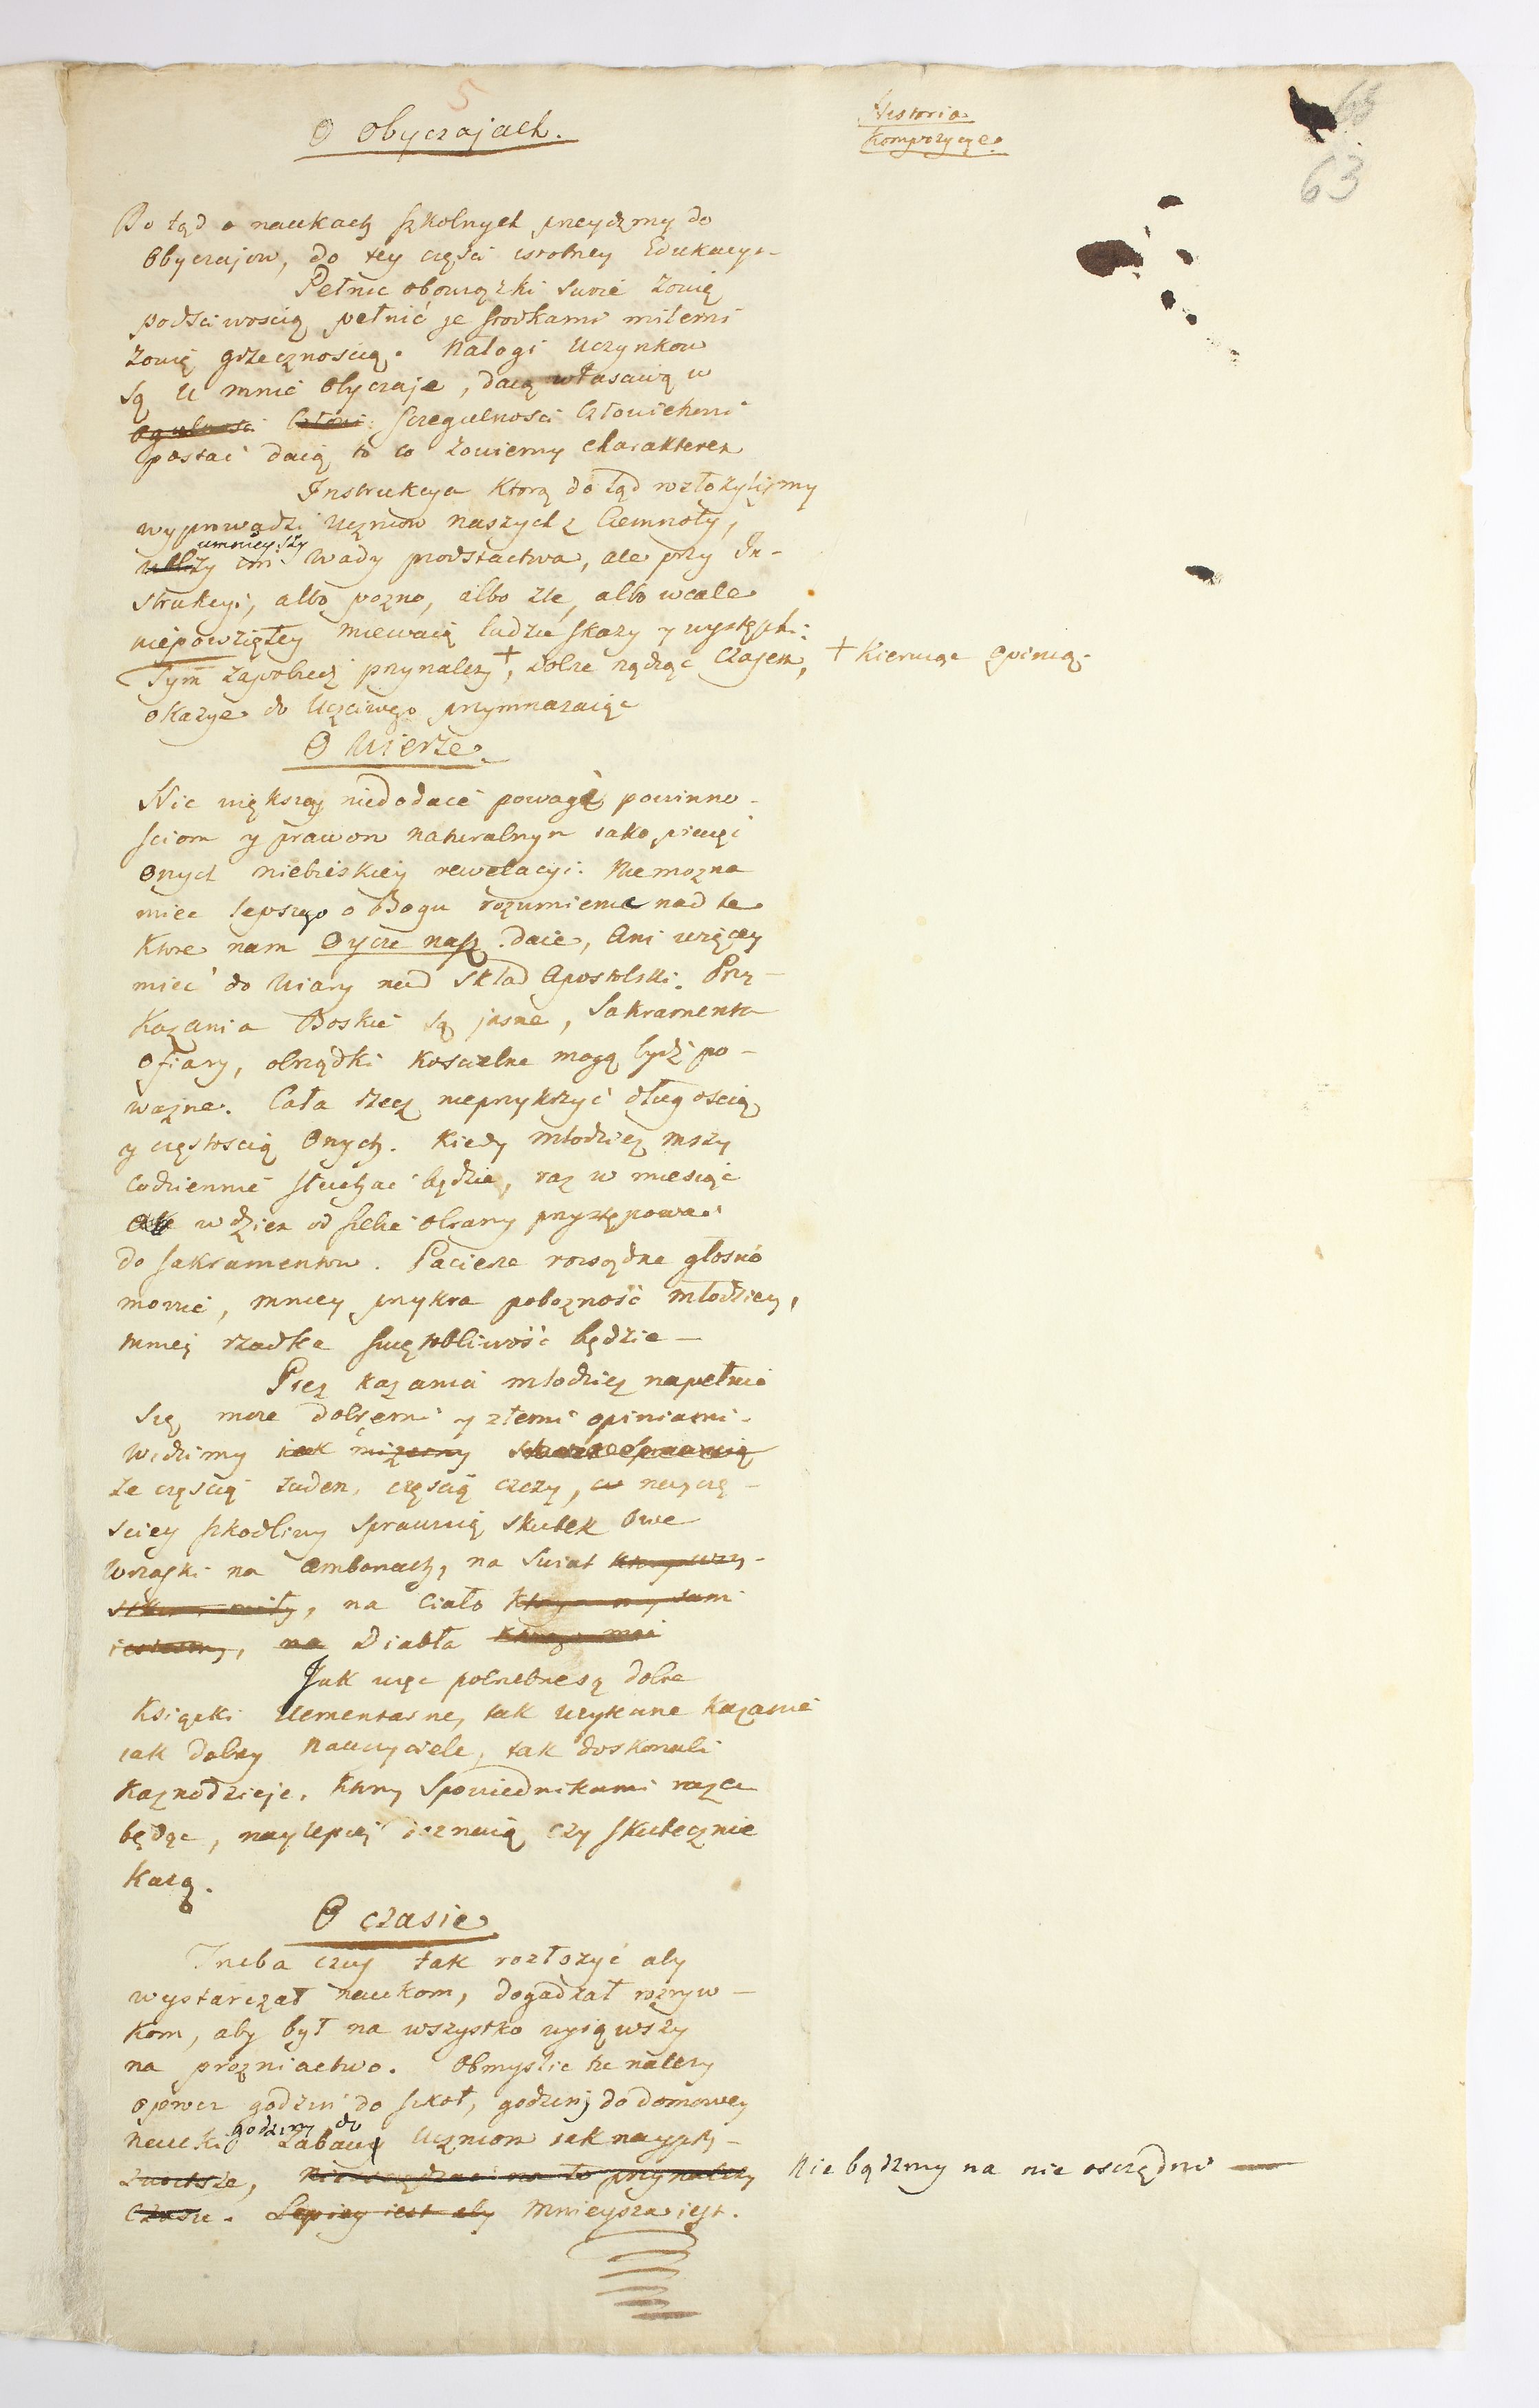 5
O Obyczajach.
Historia
Kompozycye.
63
Do tąd o naukach szkolnych, przydzmy do
Obyczajow, do tey części istotney Edukacyi.
Pełnić obowiązki swoie zowię
podściwością pełnić je srodkami miłemi
zowię grzecznością. Nałogi Uczynkow
są u mnie Obyczaje, daią własciwą w
Ogulności Człowi sczegulności Człowiekowi
postać daią to co zowiemy charakterem
Instrukcya ktorą do tąd rozłożyliśmy
wyprowadzi Uczniow naszych z Ciemnoty,
umnieyszy
im wady prostactwa, ale przy In-
strukcyi, albo pozno, albo zle, albo wcale
niepowziętey miewaią ludzie skazy y występki.
Tym zapobiedz przynależy +, dobrze rządząc Czasem,
+ Kierując opinią.
okazye do Uczciwego przymnażaiąc
O Wierze.
Nic większey niedodaie powagi powinno-
sciom y prawom naturalnym iako pieczęć
Onych niebieskiey rewelacyi. Nie mozna
miec lepszego o Bogu rozumienia nad te
ktore nam Oycze nasz daie, Ani więcey
mieć do Wiary nad Skład Apostolski. Przy-
kazania Boskie są jasne, Sakramenta
Ofiary, obrządki koscielne mogą bydź po-
wazne. Cała rzecz nieprzykrzyć długoscią
y częstoscią Onych. Kiedy młodziez mszy
codziennie słuchać będzie, raz w miesiąc
w dzien od siebie obrany przystępować
do sakramentow. Pacierze rozsądne głosno
mowić, mniey przykra poboznosć młodziezy,
mniey rzadka swiętobliwość będzie —
Przez kazania młodziez napełnia
się moze dobremi y złemi opiniami.
Widzimy iak mizerny skutek sprawuią
ze częscią zaden, częscią czczy, a nayczę-
sciey szkodliwy sprawuią skutek Owe
wrzaski na ambonach, na Swiat
, na Ciało ktory my sami
iestesmy, na Diabła
Jak więc potrzebne są dobre
Ksiązki Elementarne, tak wybrane kazania
iak dobrzy Nauczyciele, tak doskonali
Kaznodzieje. Ktorzy Spowiednikami razem
będąc, naylepiey doznaią czy skutecznie
kazą.
O czasie
Trzeba czas tak rozłozyć aby
wystarczał naukom, dogadzał rozryw-
kom, aby był na wszystko wyiąwszy
na prozniactwo. Obmyslic tu nalezy
oprocz godzin do szkoł, godziny do domowey
nauki godziny do Zabawy Uczniom iak nayprzy-
zwoitsze, Nie oszczędzać na to przynalezy
Nie bądzmy na nie osczędni —
Czasu. Lepiey iest aby Mnieysza iest.